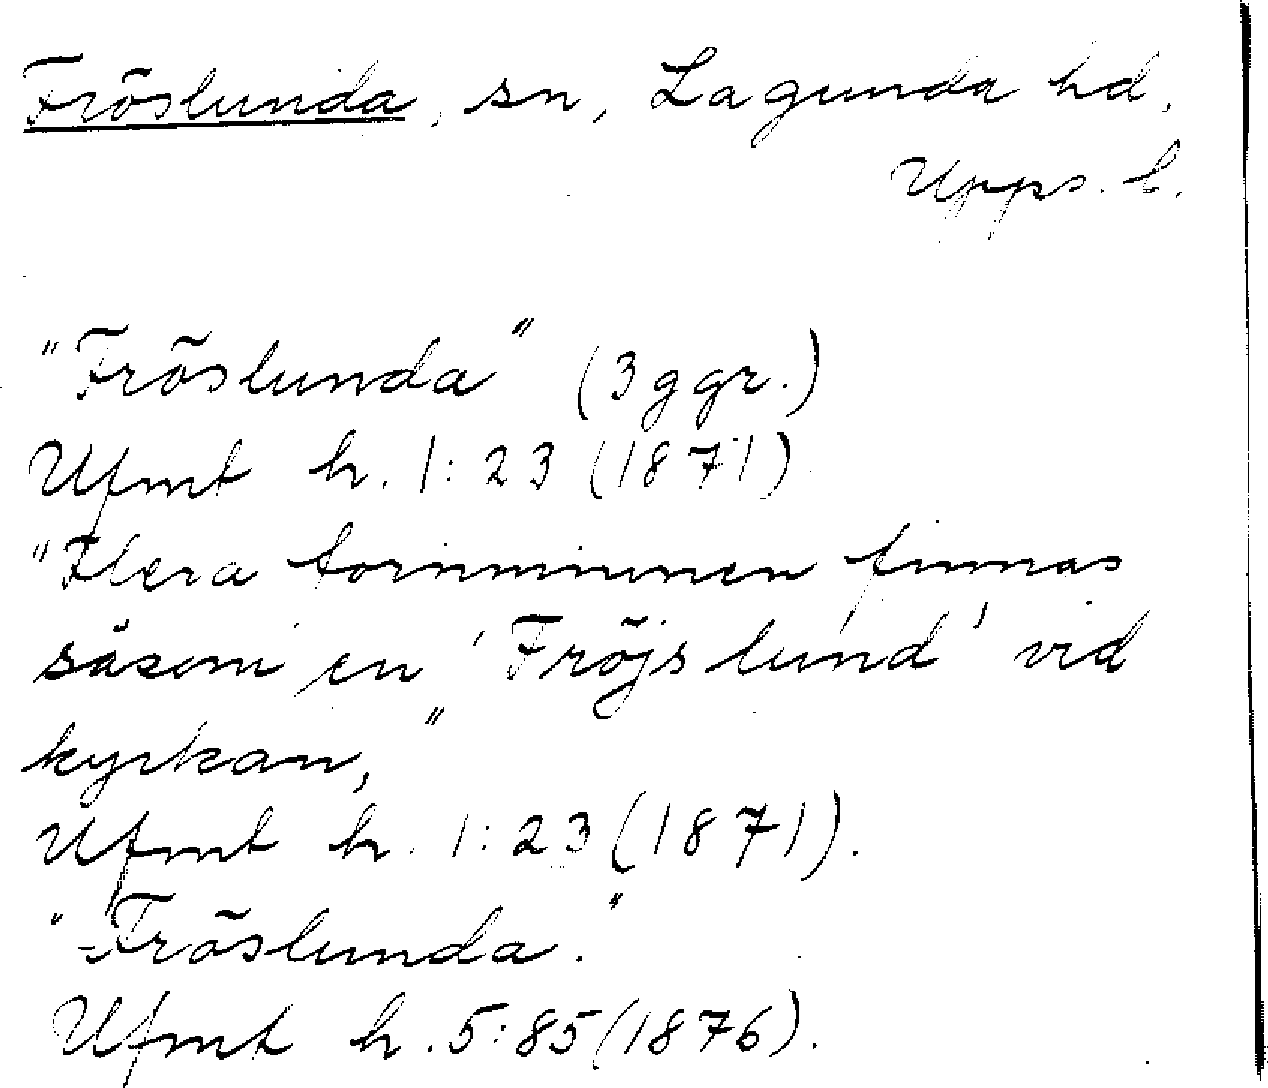 Fröslunda, sn, Lagunda hd.
Upps. l.
"Fröslunda" (3 ggr.)
Ufmt h. 1:23 (1871)
"Flera fornminnen finnas
såsom en 'Fröjs lund' vid
kyrkan,"
Ufmt h. 1:23 (1871).
"Fröslunda."
Ufmt h. 5:85 (1876).